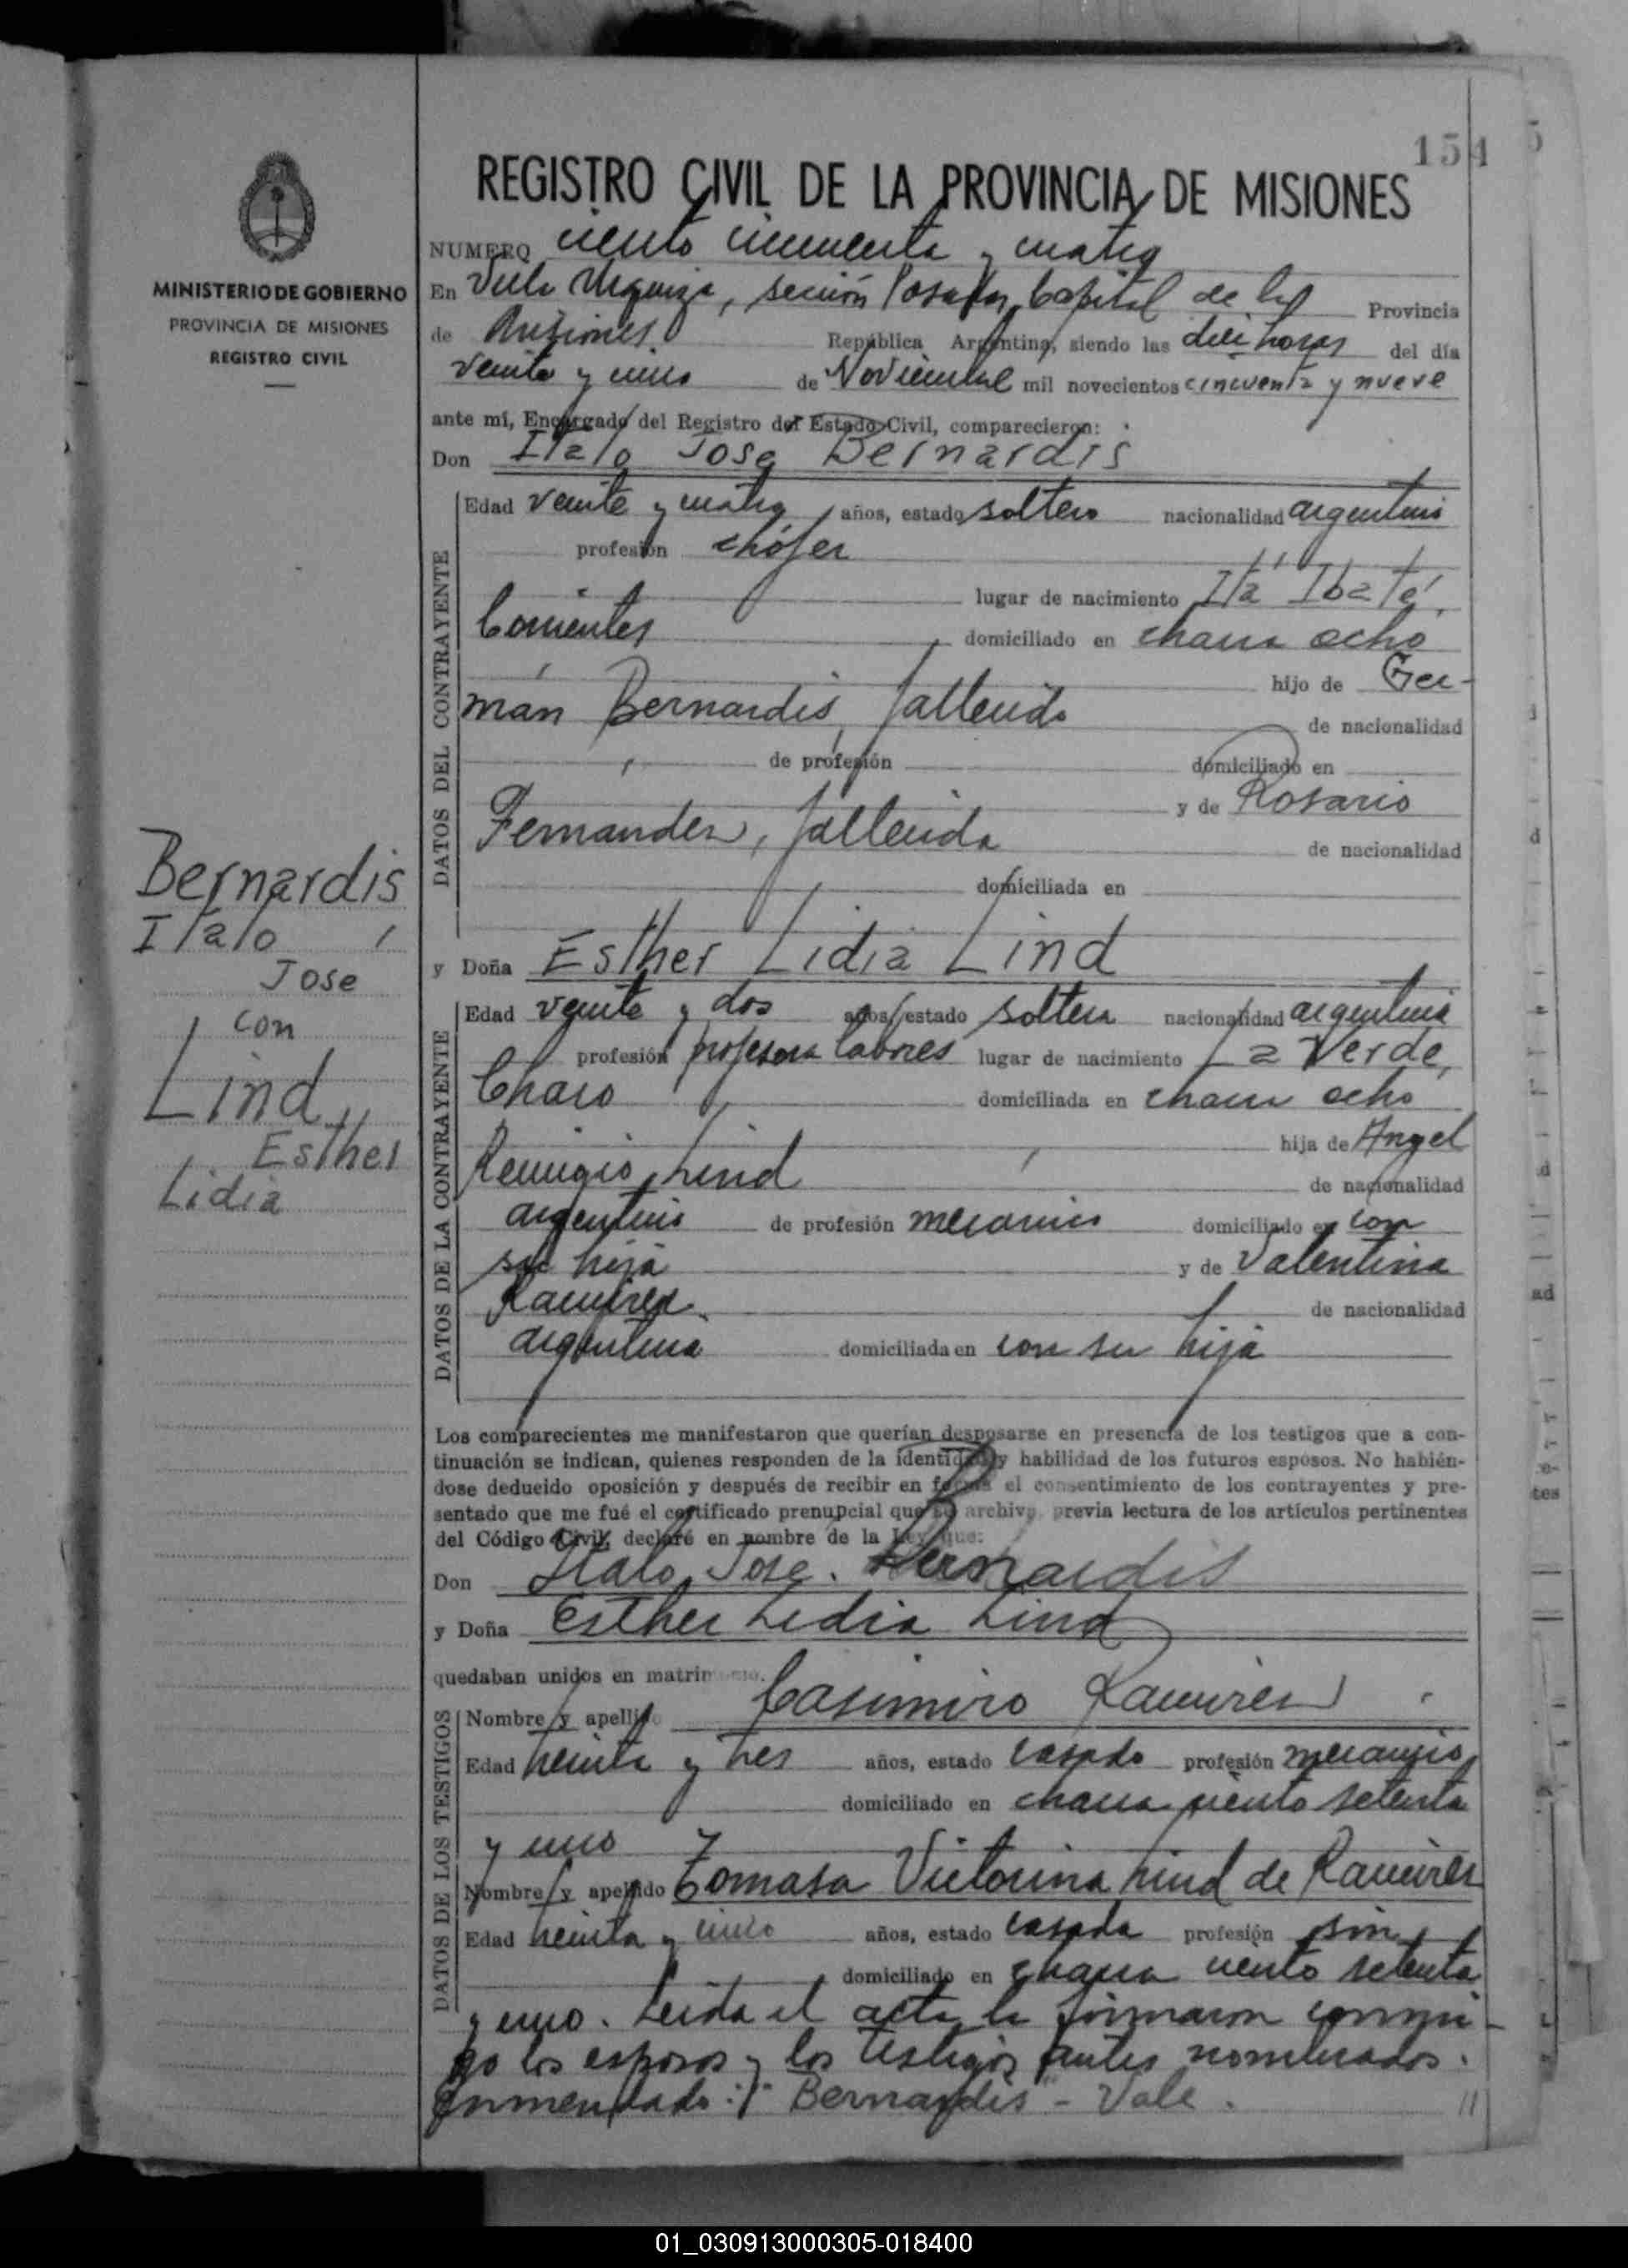 154
REGISTRO CIVIL DE LA PROVINCIA DE MISIONES
MINISTERIO DE GOBIERNO
PROVINCIA DE MISIONES
REGISTRO CIVIL
Bernardis
Italo
Jose
con
Lind
Esther
Lidia
NUMERO ciento cincuenta y cuatro
En Villa Urquiza, sección Posadas, Capital de la Provincia
de Misiones República Argentina, siendo las diez horas del día
veinte y uno de Noviembre mil novecientos cincuenta y nueve
ante mí, Encargado del Registro del Estado Civil, comparecieron:
Don Italo Jose Bernardis
DATOS DEL CONTRAYENTE
Edad veinte y cuatro años, estado soltero nacionalidad argentino
profesión chófer
lugar de nacimiento Itá Ibaté,
Corrientes domiciliado en chacra ocho
hijo de Ger-
mán Bernardis, fallecido de nacionalidad
de profesión domiciliado en
y de Rosario
Fernandez, fallecida de nacionalidad
domiciliada en
y Doña Esther Lidia Lind
DATOS DE LA CONTRAYENTE
Edad veinte y dos años, estado soltera nacionalidad argentina
profesión profesora labores lugar de nacimiento La Verde,
Chaco domiciliada en chacra ocho
hija de Angel
Remigio Lind de nacionalidad
argentino de profesión mecanico domiciliado en con
su hija y de Valentina
Ramirez de nacionalidad
argentina domiciliada en con su hija
Los comparecientes me manifestaron que querían desposarse en presencia de los testigos que a con-
tinuación se indican, quienes responden de la identidad y habilidad de los futuros esposos. No habién-
dose deducido oposición y después de recibir en forma el consentimiento de los contrayentes y pre-
sentado que me fué el certificado prenupcial que se archiva, previa lectura de los artículos pertinentes
del Código Civil, declaré en nombre de la Ley que:
Don Italo Jose. Bernardis
y Doña Esther Lidia Lind
quedaban unidos en matrimonio.
DATOS DE LOS TESTIGOS
Nombre y apellido Casimiro Ramirez
Edad treinta y tres años, estado casado profesión mecanico,
domiciliado en chacra ciento setenta
y uno y
Nombre y apellido Tomasa Victorina Lind de Ramirez
Edad treinta y cinco años, estado casada profesión sin,
domiciliado en chacra ciento setenta
y uno. Leida el acta la firmaron conmi-
go los esposos y los testigos antes nombrados.
Enmendado: "Bernardis" - Vale.
01_030913000305-018400